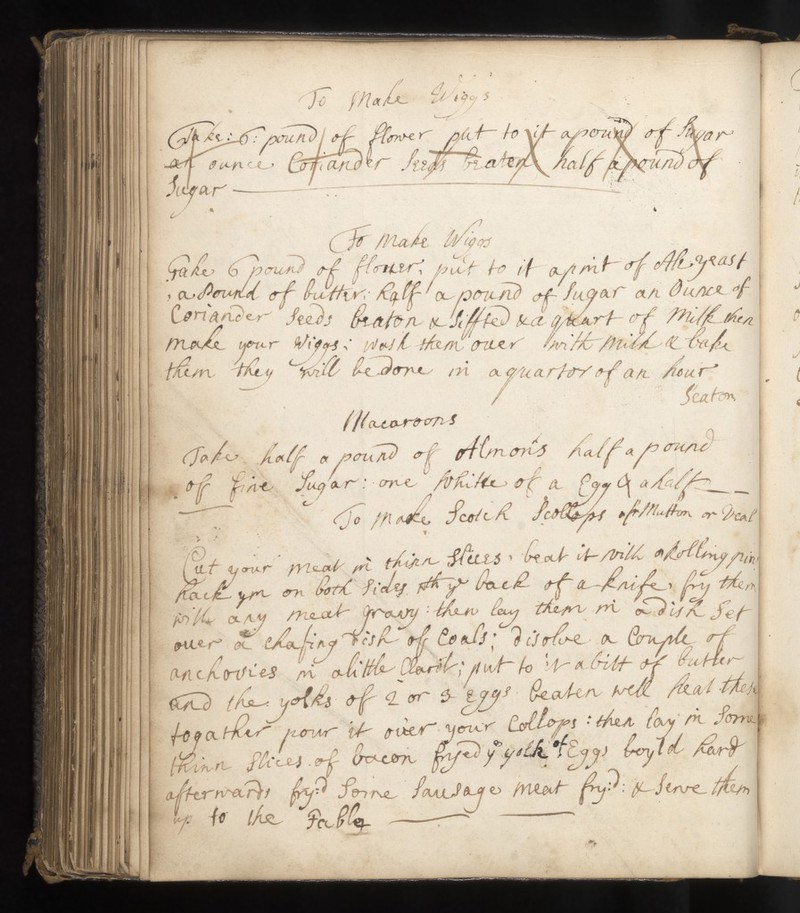 To Make Wiggs
Take: 6: pound of flower put to it a pound of Sugar
an ounce Coriander Seeds beaten half a pound of
Sugar
To make Wiggs
Take 6 pound of flower, put to it a pint of Ale yeast
a Pound of butter: half a pound of Sugar an Ounce of
Coriander Seeds beaton & Siffted & a quart of Milk then
make your Wiggs: wash them ouer with Milk & bake
them they will be done in a quartor of an hour
Seaton
Macaroons
Take half a pound of Almons half a pound
of fine Sugar: one Whitte of a Egg & a half
To Make Scotch Scollops of Mutton or Veal
Cut your meat in thinn Slices, beat it with a Rolling pin
hack ym on both Sides wth ye back of a knife, fry them
with any meat gravy: then lay them in a dish Set
ouer a Chafing dish of Coals; disolve a Couple of
anchovies in a little Clarit; put to it a bitt of butter
and the yolks of 2 or 3 eggs beaten well heat these
togather pour it ouer your Collops: then lay in Some
thinn Slices of bacon fryed ye yolk of Eggs boyld hard
afterwards fry:d Some Sausage meat fry:d: & Serve them
up to the Table